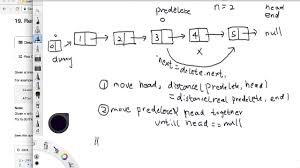 19. R
predelete
n=2
head
end
0
0
1
2
3
4
5
null
dummy
x
next = delete.next,
① move head, distance(predelete, head)
= distance(real predelete, end)
② move predelete & head together
untill head == null